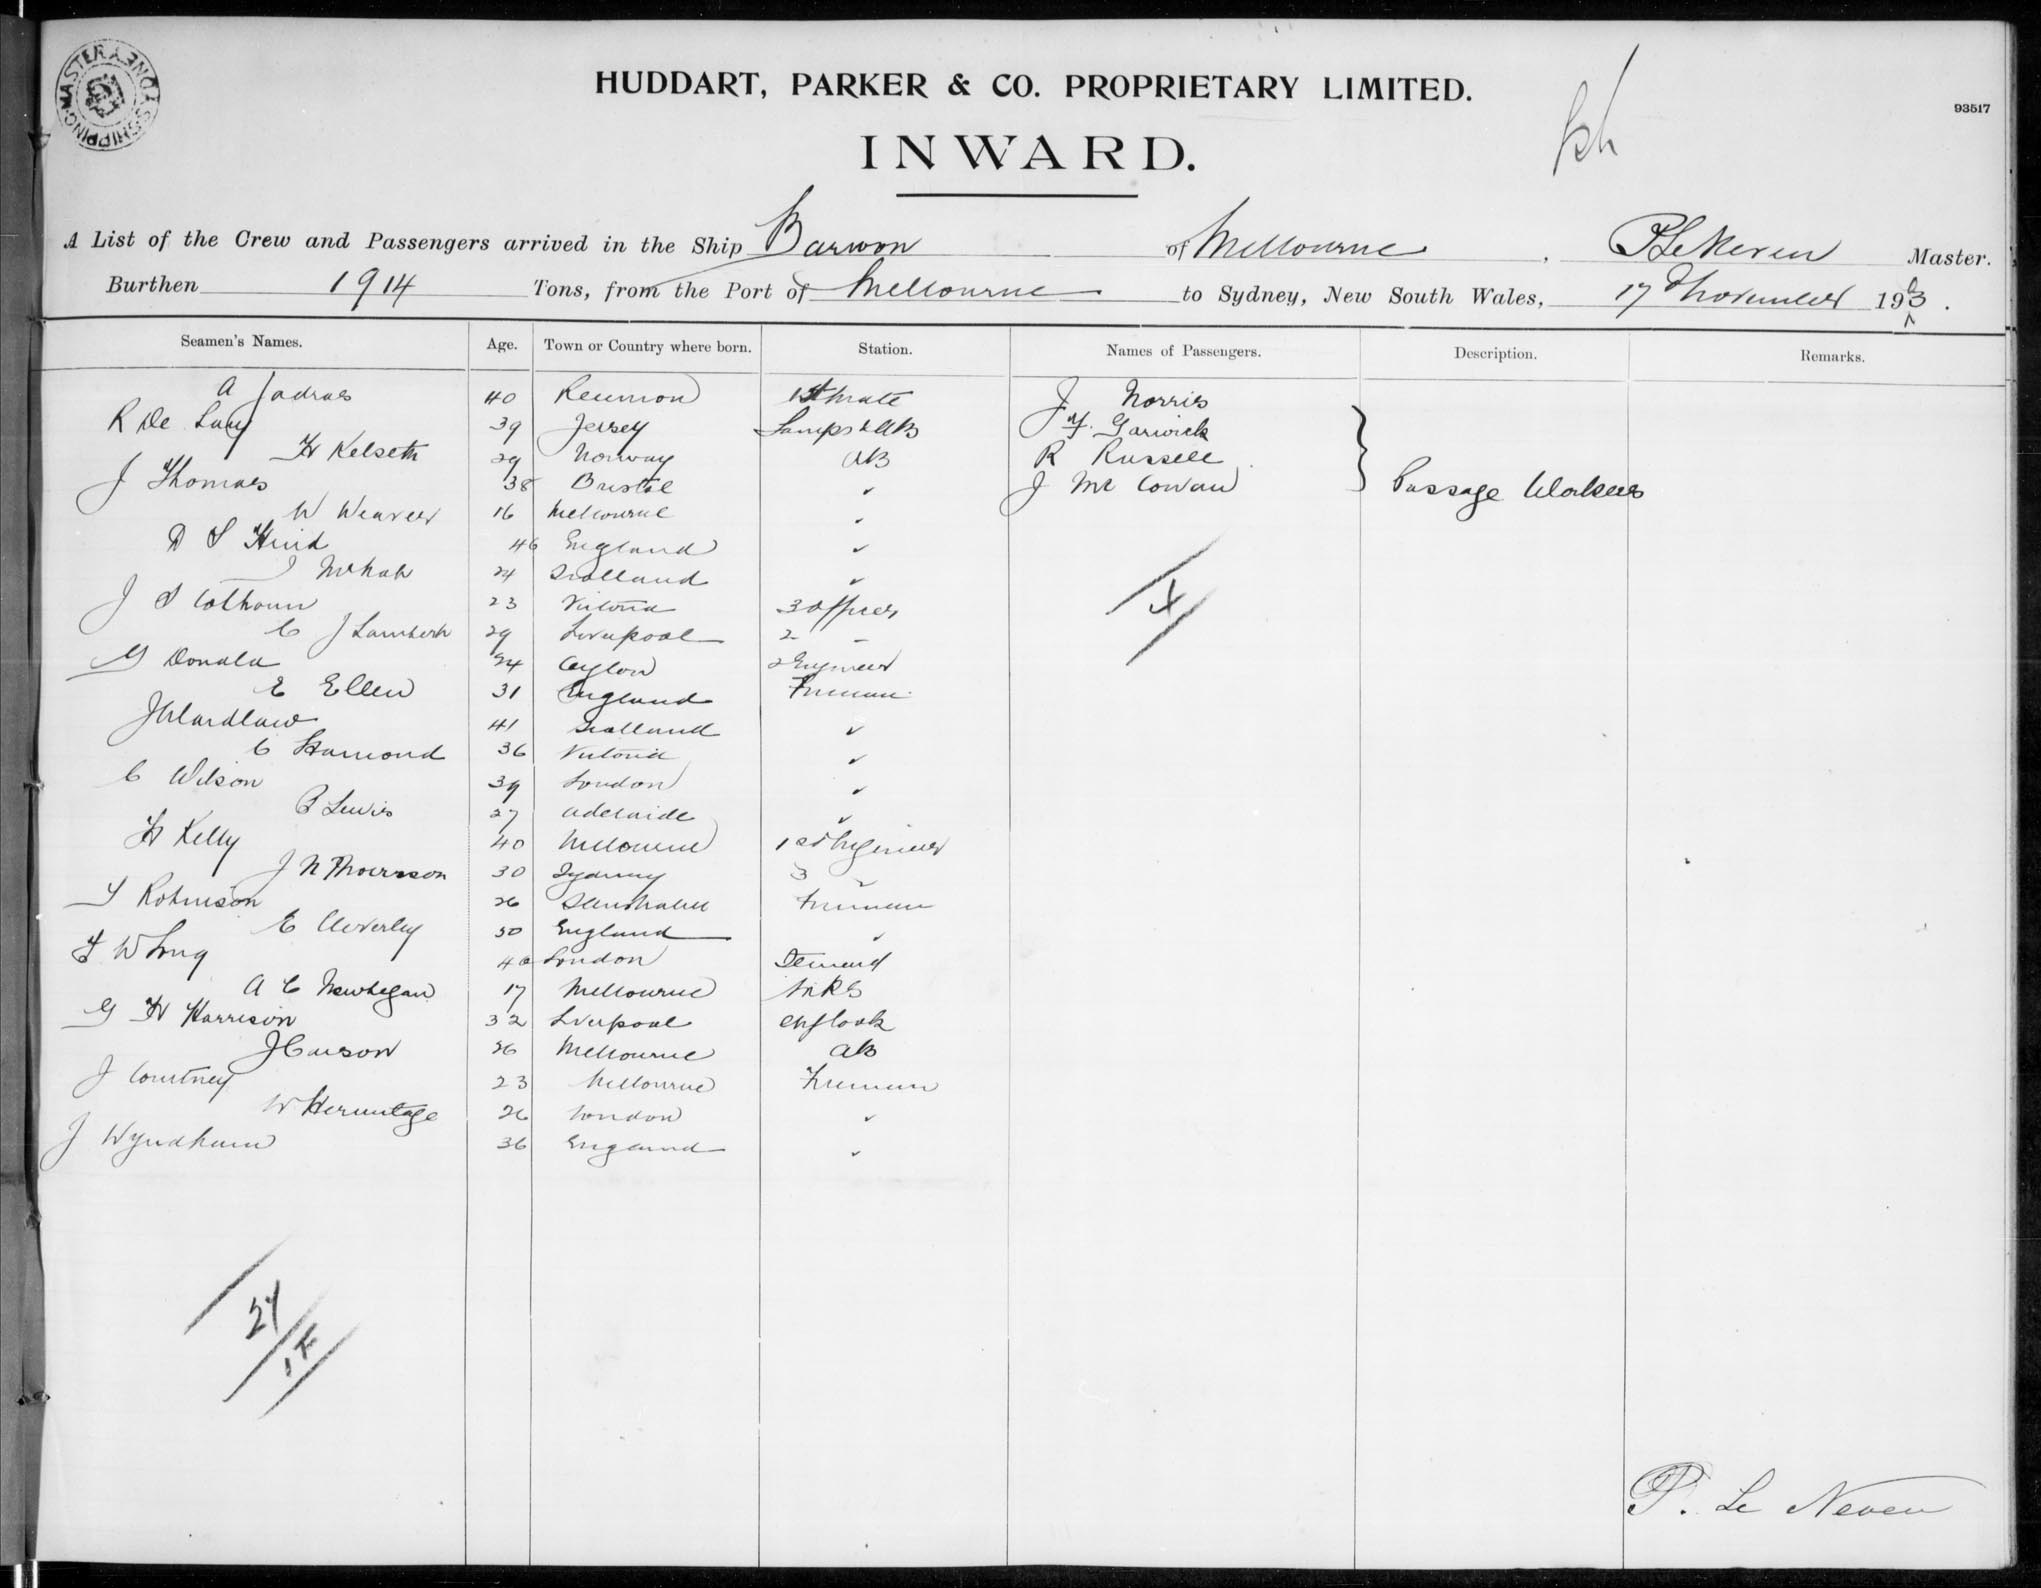 SHIPPING MASTER SYDNEY
HUDDART, PARKER & CO. PROPRIETARY LIMITED.
93517
INWARD.
A List of the Crew and Passengers arrived in the Ship Barwon of Melbourne, P Le Neven Master.
Burthen 1914 Tons, from the Port of Melbourne to Sydney, New South Wales, 17 November 193.
Seamen's Names. Age. Town or Country where born. Station. Names of Passengers. Description. Remarks.
A Jadras 40 Reunion 1st Mate J Norris
R De Lacy 39 Jersey Lamps & AB J Y. Garwick
H Kelseth 29 Norway AB R Russell
J Thomas 38 Bristol ✓ J Mc Cowan Passage Workers
W Weaver 16 Melbourne ✓
D S Hind 46 England ✓
J McNab 24 Scotland ✓
J S Colhoun 23 Victoria 3 Officer
C J Lambert 29 Liverpool 2 -
G Donald 24 Ceylon 2 Engineer
E Ellen 31 England Fireman
J Wardlaw 41 Scotland ✓
C Hamond 36 Victoria ✓
C Wilson 39 London ✓
B Lewis 27 Adelaide ✓
H Kelly 40 Melbourne 1st Engineer
J N 30 Sydney 3 -
S Robinson 26 Fireman
E Cleverley 50 England ✓
F W Long 40 London Steward
A C Newbegan 17 Melbourne
G H Harrison 32 Liverpool Ch Cook
J Carson 26 Melbourne AB
J Courtney 23 Melbourne Fireman
W Hermitage 26 London ✓
J Wyndham 36 England ✓
P. Le Neven